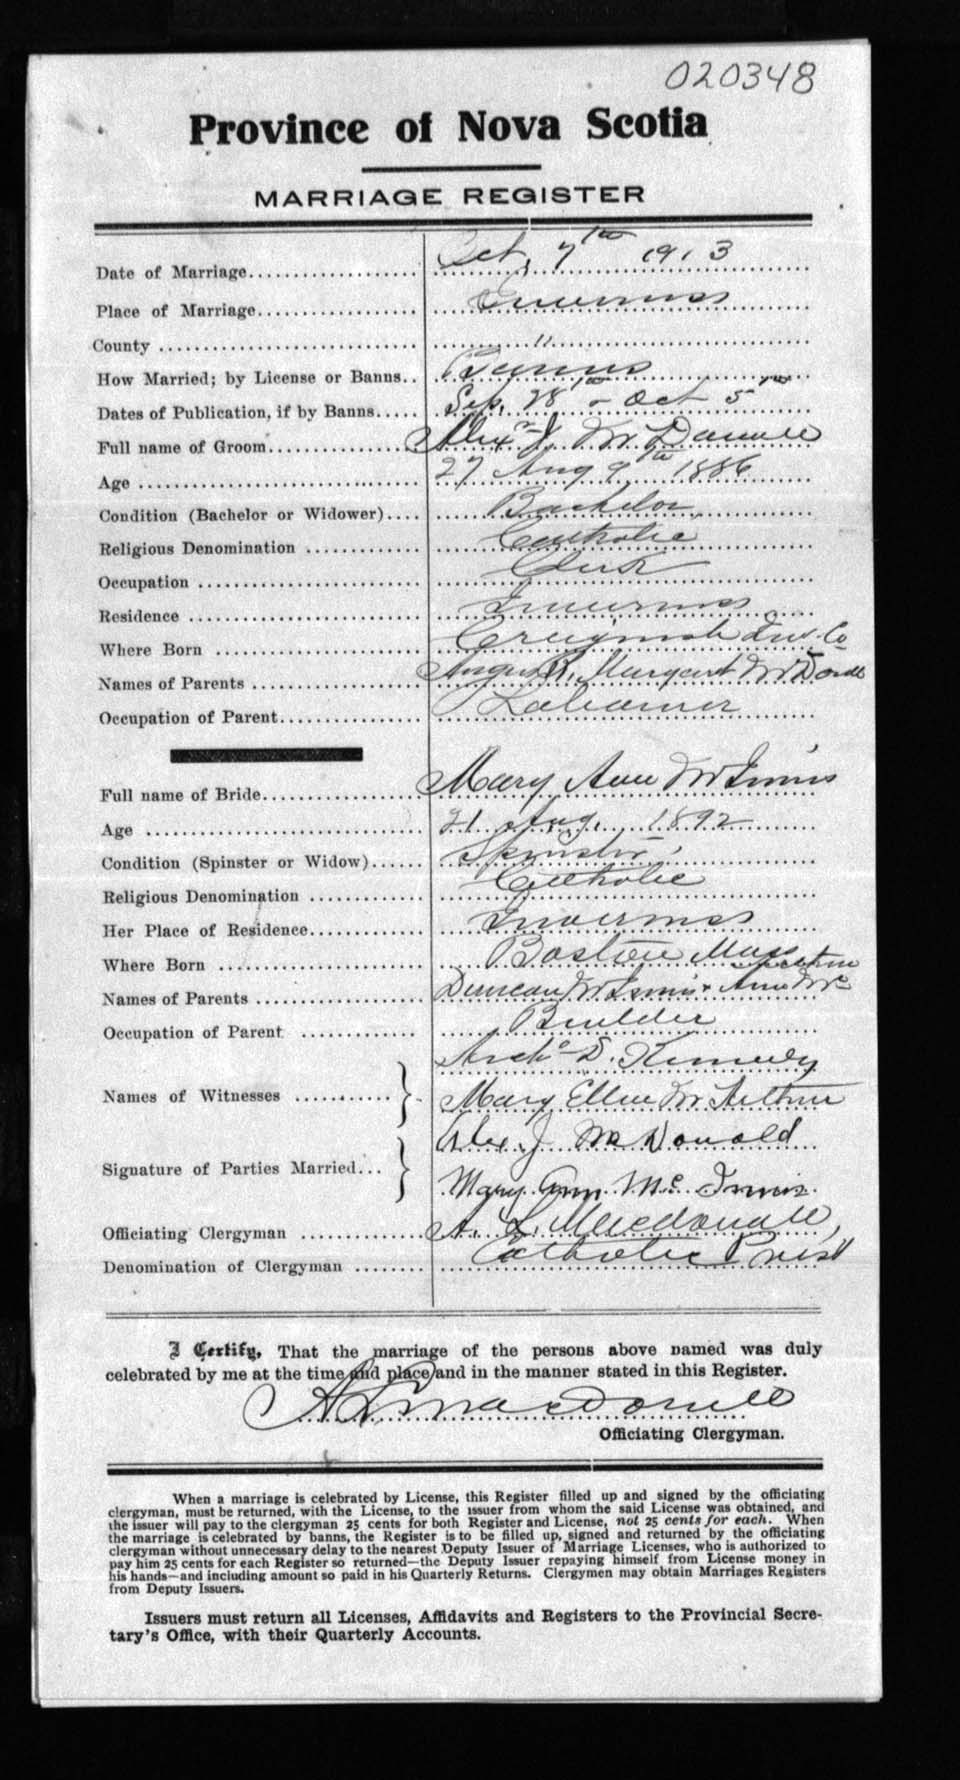 020348
Province of Nova Scotia
MARRIAGE REGISTER
Date of Marriage Oct, 7th 1913
Place of Marriage Inverness
County "
How Married; by License or Banns.. Banns
Dates of Publication, if by Banns..... Sep. 28th - Oct 5th
Full name of Groom Alexr J. McDonald
Age 27 Aug 9th 1886
Condition (Bachelor or Widower).... Bachelor
Religious Denomination Catholic
Occupation Clerk
Residence Inverness
Where Born Creignish Inv. Co
Names of Parents Angus R. Margaret McDonald
Occupation of Parent Labourer
Full name of Bride Mary Ann McInnis
Age 21 Aug. 1892
Condition (Spinster or Widow)...... Spinster
Religious Denomination Catholic
Her Place of Residence Inverness
Where Born Boston Mass
Names of Parents Duncan McInnis + Ann Mc
Occupation of Parent Builder
Archd D. Kennedy
Names of Witnesses Mary Ellen McArthur
Alex. J. McDonald
Signature of Parties Married... Mary Ann Mc Innis
Officiating Clergyman A. L. Macdonald,
Denomination of Clergyman Catholic Priest
I Certify, That the marriage of the persons above named was duly
celebrated by me at the time and place and in the manner stated in this Register.
A L Macdonald
Officiating Clergyman.
When a marriage is celebrated by License, this Register filled up and signed by the officiating
clergyman, must be returned, with the License, to the issuer from whom the said License was obtained, and
the issuer will pay to the clergyman 25 cents for both Register and License, not 25 cents for each. When
the marriage is celebrated by banns, the Register is to be filled up, signed and returned by the officiating
clergyman without unnecessary delay to the nearest Deputy Issuer of Marriage Licenses, who is authorized to
pay him 25 cents for each Register so returned—the Deputy Issuer repaying himself from License money in
his hands—and including amount so paid in his Quarterly Returns. Clergymen may obtain Marriages Registers
from Deputy Issuers.
Issuers must return all Licenses, Affidavits and Registers to the Provincial Secre-
tary's Office, with their Quarterly Accounts.